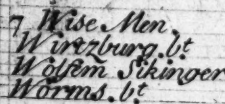 7 Wise Men.
Wirtzburg. bt
Wolfem̄ Sikinger
Worms. bt